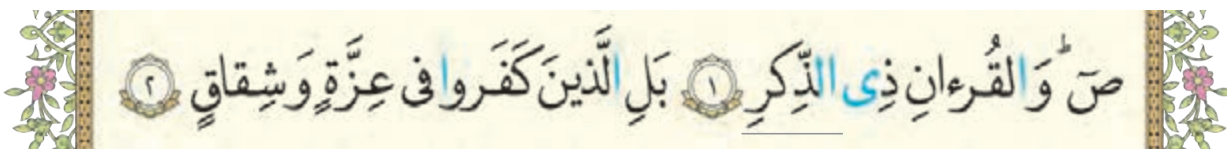 صٓ وَالقُرءانِ ذِی الذِّکرِ ۝١ بَلِ الَّذینَ کَفَروا فی عِزَّةٍ وَشِقاقٍ ۝٢